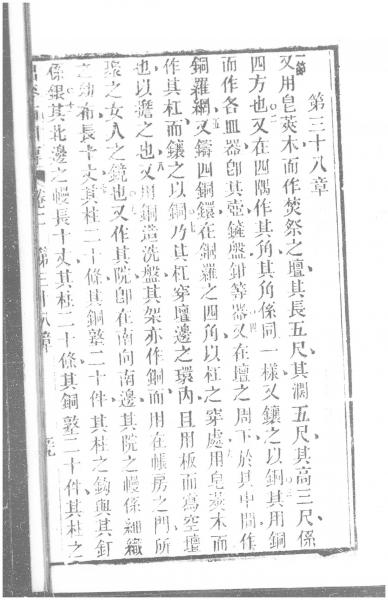 第三十八章
一節
又用皂莢木而作焚祭之壇其長五尺其濶五尺其高三尺係
四方也又在四隅作其角其角係同一樣又鑲之以銅其用銅
而作各皿器卽其壺鏟盤鉗等器又在壇之周下於其中間作
銅羅網又鑄四銅鐶在銅羅之四角以杠之穿處用皂莢木而
作其杠而鑲之以銅乃其杠穿壇邊之環內且用板而為空壇
也以擔之也又用銅造洗盤其架亦作銅而用在帳房之門所
聚之女人之鏡也又作其院卽在南向南邊其院之幔係細織
之幼布長十丈其柱二十條其銅鐜二十件其柱之鈎與其釘
係銀其北邊之幔長十丈其柱二十條其銅鐜二十件其柱之
卷二 第三十八章